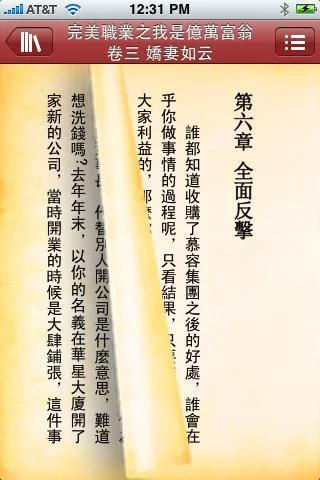 AT&T 12:31 PM
完美職業之我是億萬富翁
卷三 嬌妻如云
第六章 全面反擊
誰都知道收購了慕容集團之後的好處，誰會在
乎你做事情的過程呢，只看結果，只
大家利益的，那麼
長，代替別人開公司是什麼意思，難道
想洗錢嗎？去年年末，以你的名義在華星大廈開了
家新的公司，當時開業的時候是大肆鋪張，這件事